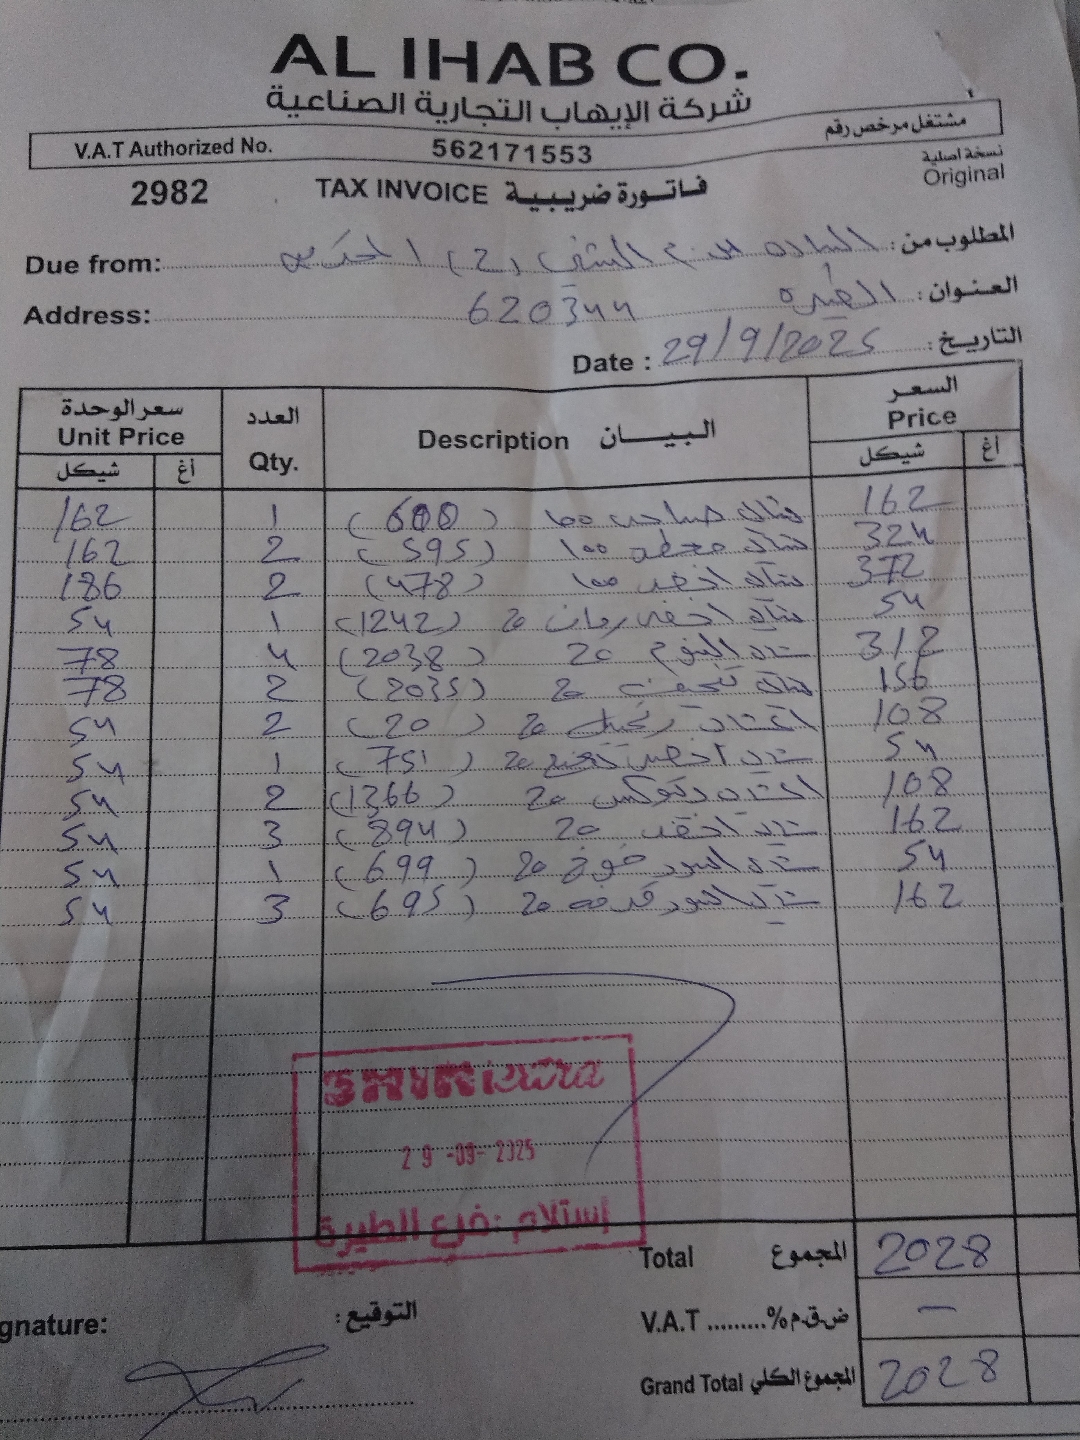 AL IHAB CO.
شركة الإيهاب التجارية الصناعية
V.A.T Authorized No. 562171553 مشتغل مرخص رقم
نسخة اصلية
Original
2982 TAX INVOICE فاتورة ضريبية
Due from: المطلوب من: الساده
Address: 620344 العنوان: الطيره
Date : 29/9/2025 التاريخ:
سعر الوحدة العدد البيان السعر
Unit Price Qty. Description Price
شيكل أغ شيكل أغ
162 1 (600) 100 162
162 2 (595) شاي 100 324
186 2 (478) شاي اخضر 100 372
54 1 (1242) شاي اخضر رمان 20 54
78 4 (2038) شاي النوم 20 312
78 2 (2035) شاي 20 156
54 2 (20) زنجبيل 20 108
54 1 (751) شاي اخضر نعنع 20 54
54 2 (1366) 20 108
54 3 (894) شاي اخضر 20 162
54 1 (699) شاي اسود خوخ 20 54
54 3 (695) شاي اسود قرفه 20 162
SHINI extra
29-09-2025
إستلام : فرع الطيرة
Total المجموع 2028
V.A.T .........% ض.ق.م —
Grand Total المجموع الكلي 2028
gnature: التوقيع: